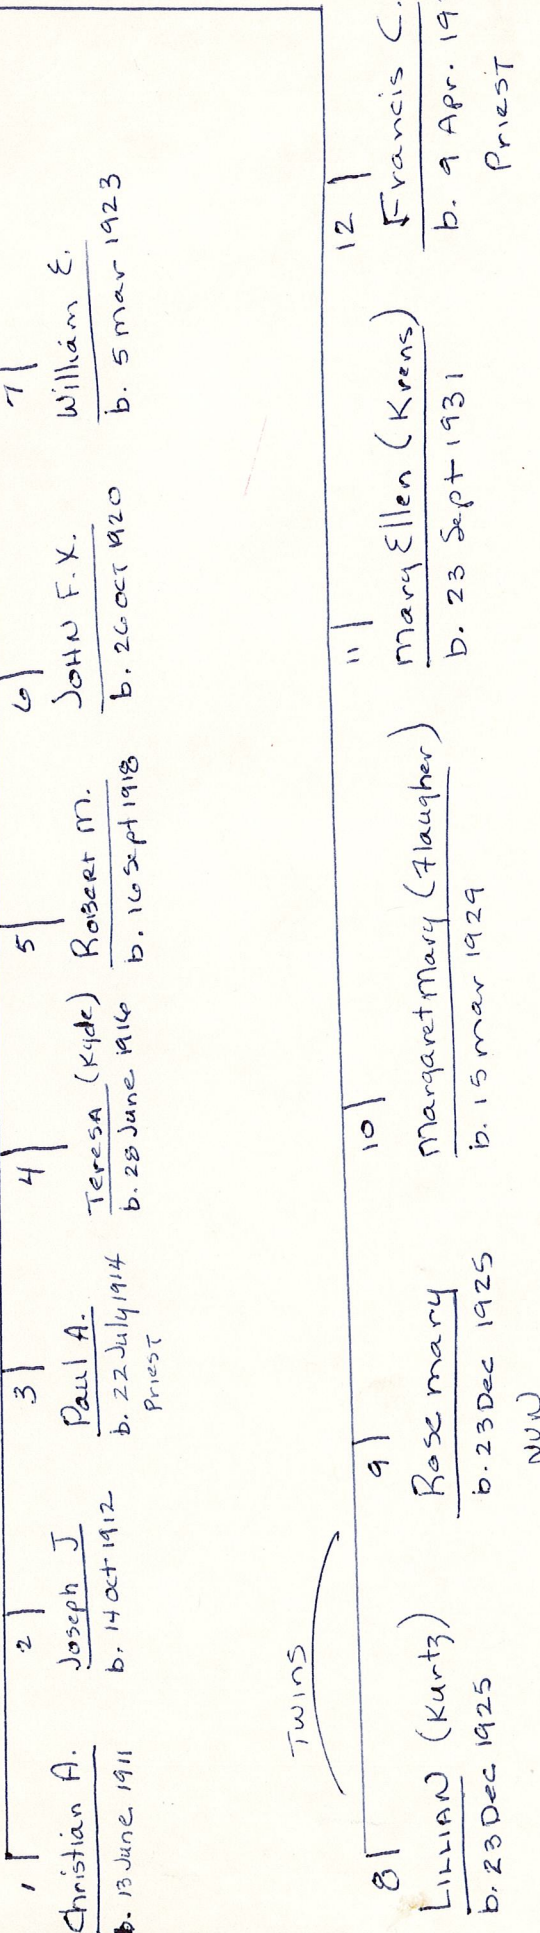 1
Christian A.
b. 13 June 1911
2
Joseph J
b. 14 Oct 1912
3
Paul A.
b. 22 July 1914
Priest
4
Teresa (Kyde)
b. 28 June 1916
5
Robert M.
b. 16 Sept 1918
6
John F.X.
b. 26 Oct 1920
7
William E.
b. 5 Mar 1923
Twins
8
Lillian (Kurtz)
b. 23 Dec 1925
9
Rose mary
b. 23 Dec 1925
NUN
10
Margaret Mary (Flaugher)
b. 15 Mar 1929
11
Mary Ellen (Krens)
b. 23 Sept 1931
12
Francis C.
b. 9 Apr. 19
Priest